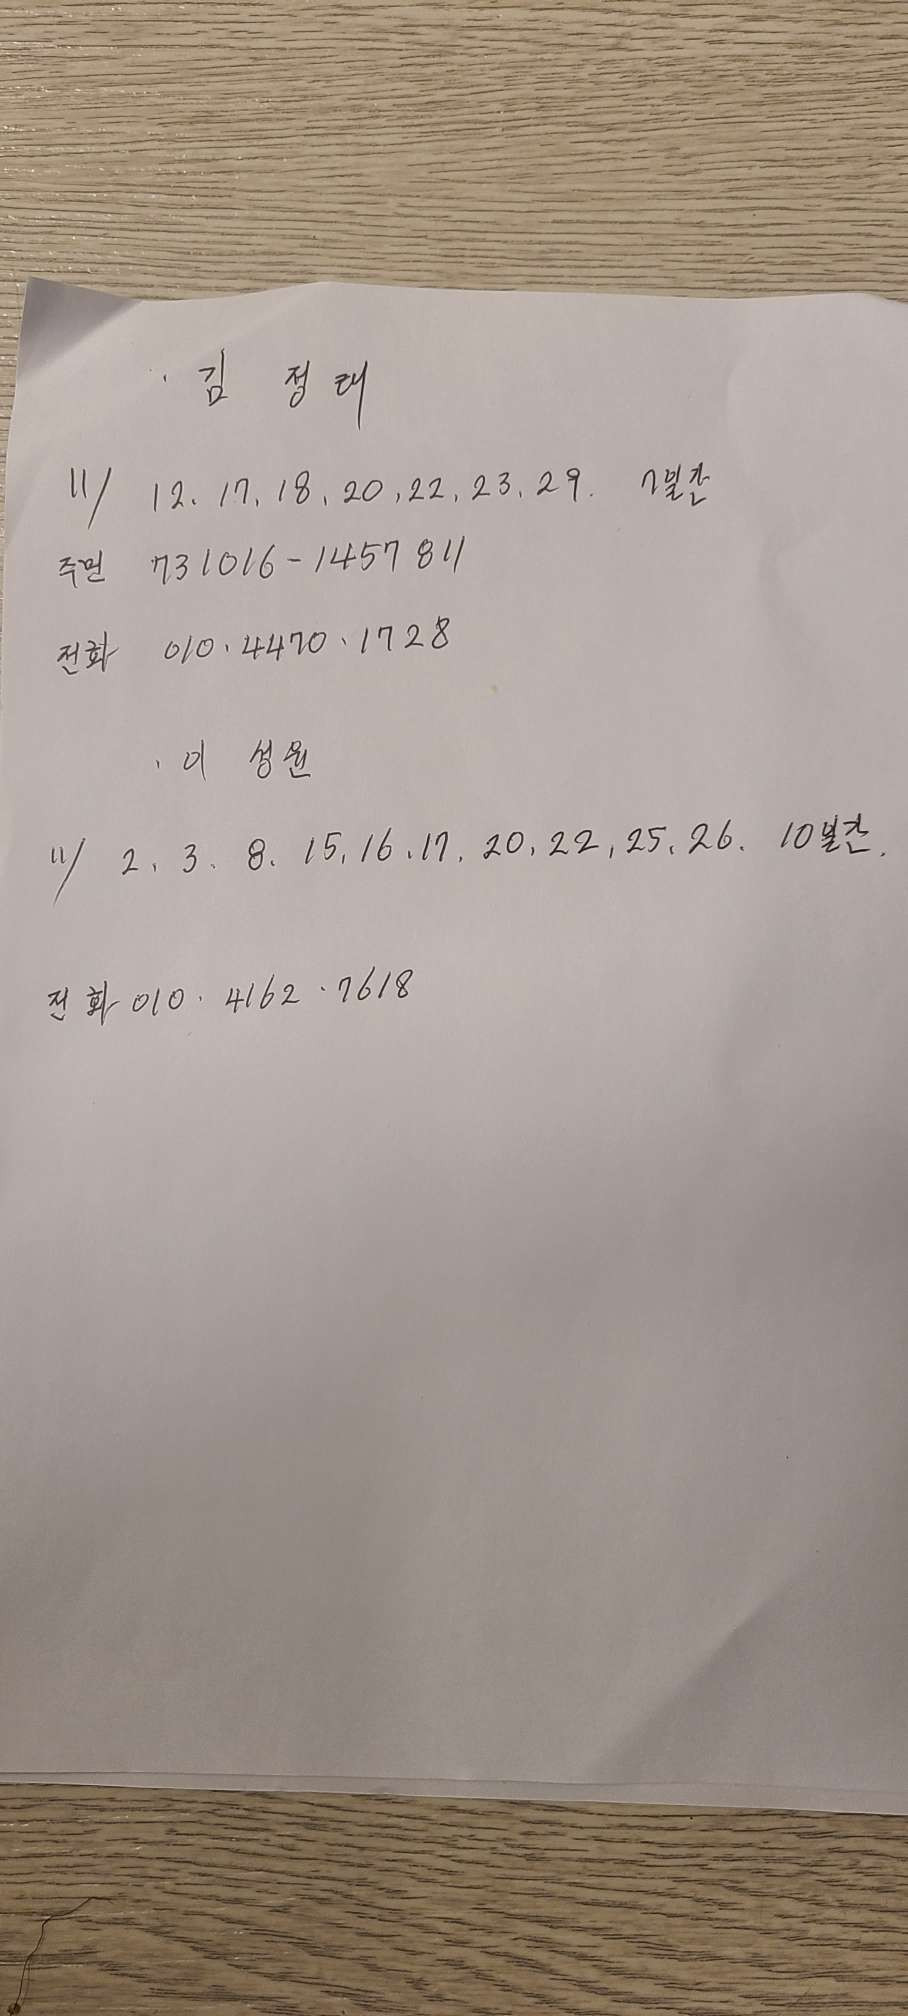 · 김 정태
11/ 12. 17. 18. 20, 22, 23. 29. 7일간
주민 731016-1457811
전화 010.4470.1728
· 이 성원
11/ 2. 3. 8. 15, 16. 17. 20, 22, 25, 26. 10일간.
전화 010. 4162.7618